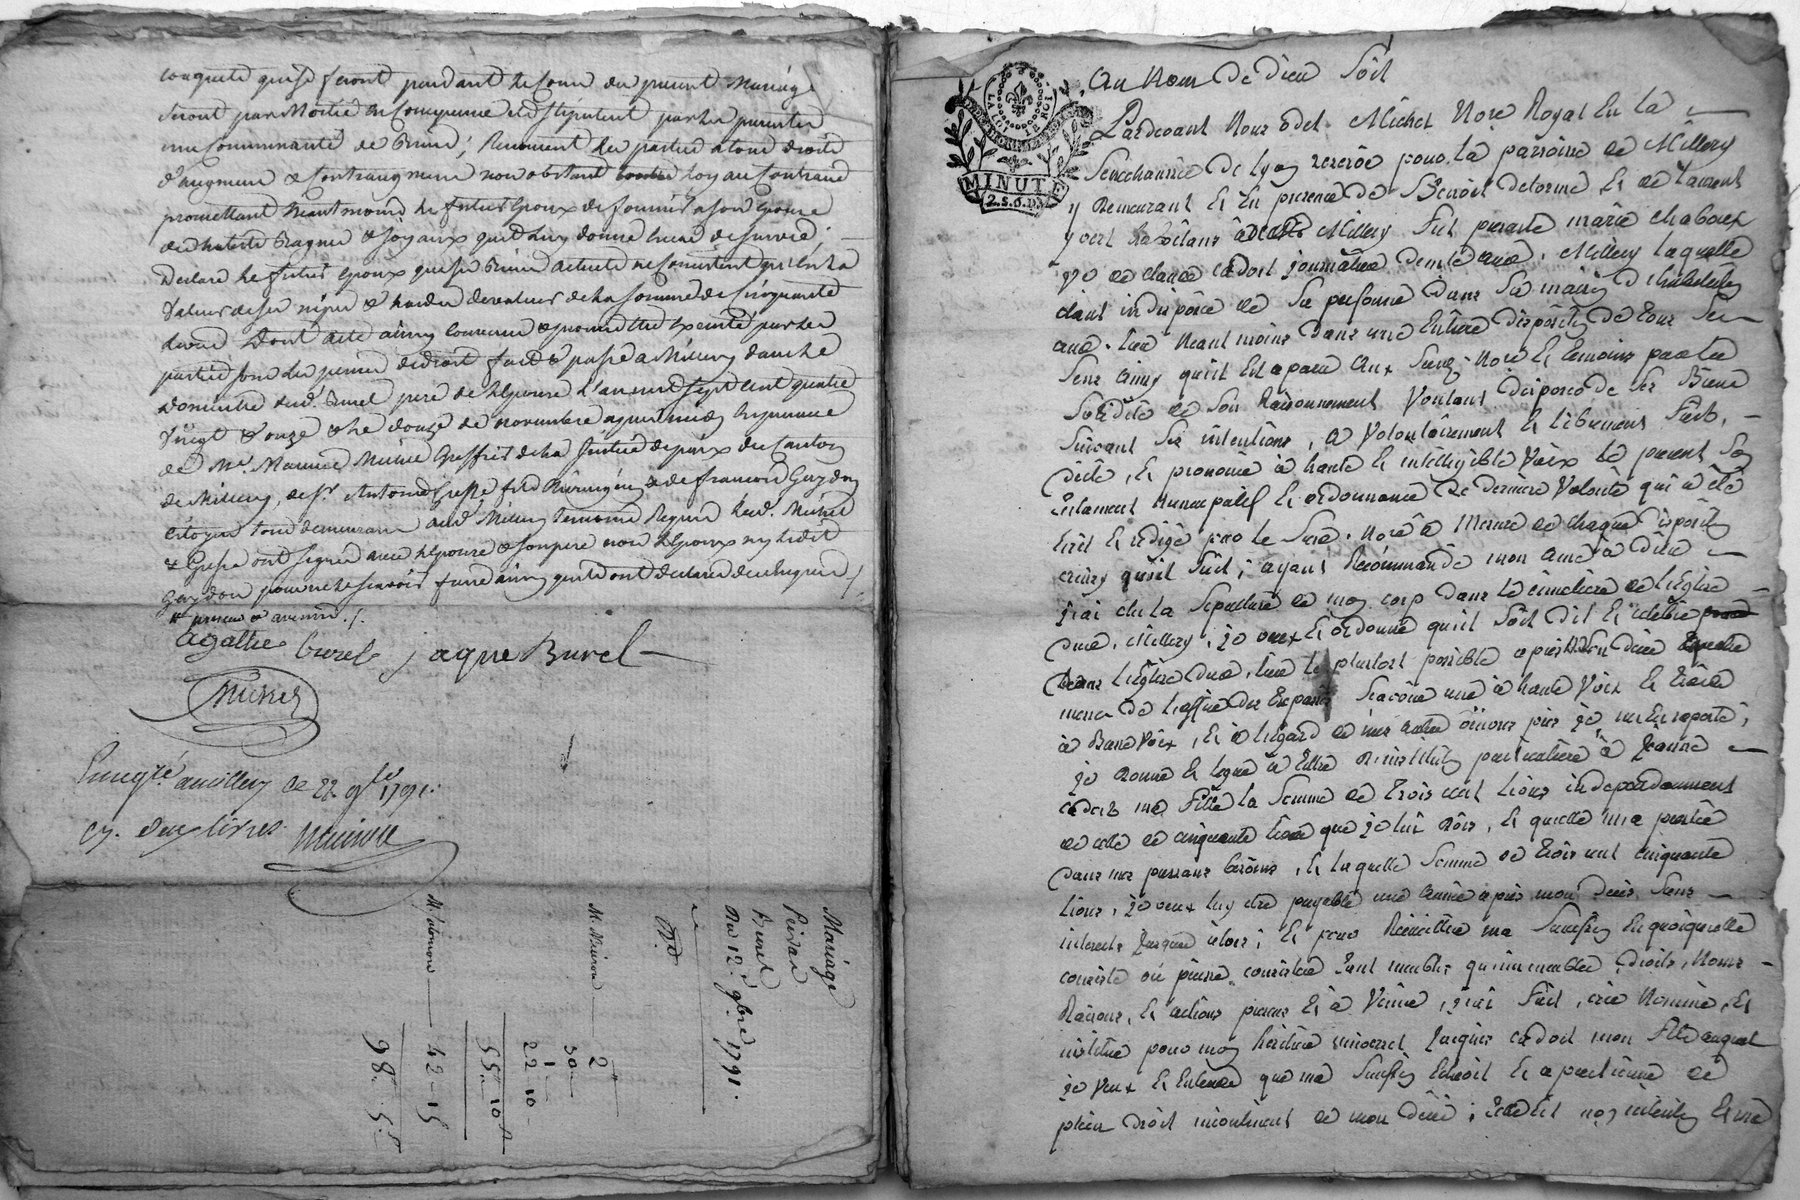 conquets qui se feront pendant le cours du present Mariage
seront par Moitié en Compagnie et stipulent par les presentes
une Communauté de Biens; Renoncent les parties a tous droits
d'augment & Contraugment non obstant Loy au Contraire
promettant neantmoins le futur Epoux de fournir a son Epouse
des habits Bagues & joyaux qu'il luy donne en cas de survie;
Declare le futur Epoux que ses Biens actuels ne Consistent qu'en la
Valeur de ses nipes & hardes de valeur de la somme de Cinquante
Livres Dont acte ainsy convenu & promettre Executé par les
parties sous les peines de droit fait & passé a Millery dans le
Domicile dud. Burel pere de l'Epouse L'an mil sept cent quatre
Vingt & onze & le douze de novembre apres midy En presence
de Me. Maurice Michel Greffier de la Justice de paix du Canton
de Millery, de Sr. Antoine Gresse fils Chirurgien & de francois Guydon
Citoyens tous demeurans aud. Millery Temoins Requis lesd. Michel
& Gresse ont signé avec l'Epouse & son pere non l'Epoux ny ledit
Guydon pour ne le sçavoir faire ainsy qu'ils ont declaré de ce Enquis /.
agathe burel jaque Burel
Michel
Enregtré. a millery Le 22 9bre 1791.
deux livres
Mariage
Burel
Du 12. 9bre. 1791.
2
30
1
22 10
55 10 s
42 - 15
98. 5 s
LA LOI LE ROI
MINUTE
2.S.6.D.
Au Nom De Dieu Soit
Pardevant Nous Odet Michel Nore Royal En la
Senechaussée De Lyon reservé pour la parroisse de Millery
y Demeurant Et En presence De Benoit Delorme Et de Laurent
habitans Millery Fut presente marie Chaboux
Ve de claude Cadost journaliere demte aud. Millery Laquelle
etant indisposée de Sa personne Dans Sa maison
aud. Lieu Neantmoins Dans une Entiere disposition de Tous Ses
Sens ainsy qu'il Est aparu Aux Susd. Nore Et temoins par la
Solidité de Son Raisonnement Voulant disposer de Ses Biens
Suivant Ses intentions, a Volontairement Et librement Fait,
dicté, Et prononcé à haute Et intelligible Voix Le present Son
Testament Nuncupatif Et ordonnance De derniere Volonté qui a été
Ecrit Et redigé par le Susd. Nore à Mesure de chaque Disposition
ainsy qu'il Suit; ayant Recommandé mon ame à Dieu
j'ai élu la Sepulture de mon corp dans Le cimetiere de l'Eglise
dud. Millery, je veux Et ordonne qu'il Soit Dit Et célébré
Dans l'Eglise dud. Lieu le plustost possible apres Mon décé
De messes Des trepassés Scavoir une à haute Voix Et treize
à Basse Voix, Et à l'égard de mes autres œuvres pies je m'en raporte;
je Donne Et Legue à titre D'institution particuliere à Jeanne
Cadost ma Fille la Somme de Trois cent Livres independamment
de celle de cinquante livres que je lui dois, Et qu'elle m'a pretée
dans mes pressans besoins, Et laquelle Somme de Trois cent cinquante
Livres, je veux luy etre payable une année apres mon décés Sans
interets jusques alors; Et pour Recueillir ma Succession En quoiqu'elle
consiste ou puisse consister Tant meubles qu'immeubles, Droits, Noms
Raisons, Et actions presens Et à Venir, j'ai Fait, créé Nommé, Et
institué pour mon héritier universel Jacques Cadost mon Fils auquel
je veux Et Entends que ma Succession Echoit Et apartienne de
plein droit incontinent de mon décé;